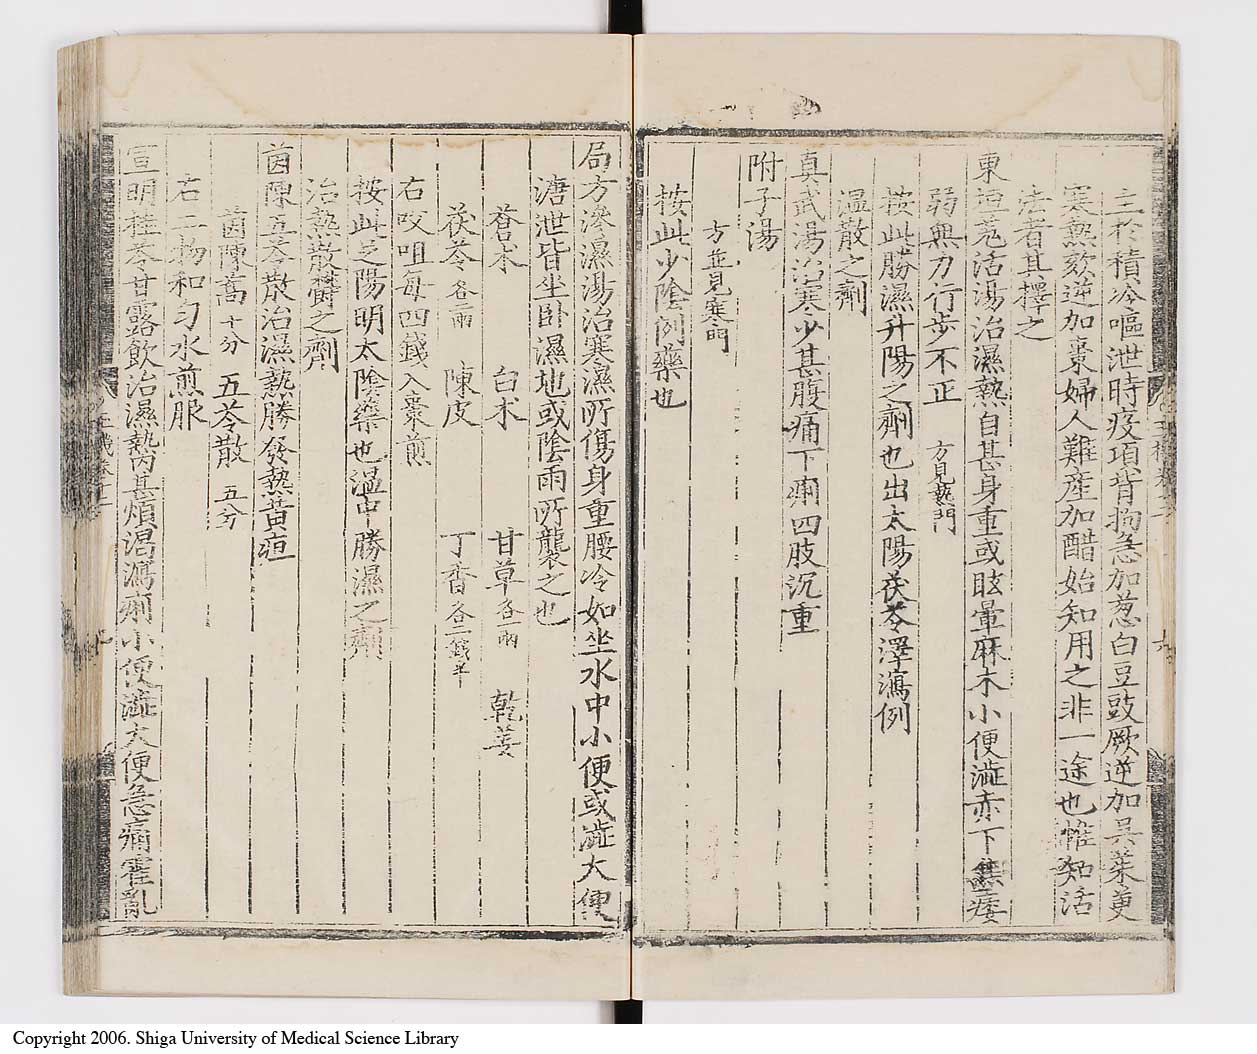 主於積冷嘔泄時疫項背拘急加葱白豆豉厥逆加吳茱萸
寒熱欬逆加棗婦人難産加醋始知用之非一途也惟知活
法者其擇之
東垣羗活湯治濕熱自甚身重或眩暈麻木小便澁赤下焦痿
弱無力行步不正 方見熱門
按此勝濕升陽之劑也出太陽茯苓澤瀉例
温散之劑
真武湯治寒少甚腹痛下痢四肢沉重
附子湯
方並見寒門
按此少陰例藥也
局方滲濕湯治寒濕所傷身重腰冷如坐水中小便或澁大便
溏泄皆坐卧濕地或陰雨所襲之也
蒼朮 白朮 甘草各一兩 乾薑
茯苓各二兩 陳皮 丁香各一錢半
右㕮咀每四錢入棗煎
按此乏陽明太陰藥也温中勝濕之劑
治熱散欝之劑
茵陳五苓散治濕熱勝發熱黄疸
茵陳蒿十分 五苓散五分
右二物和匀水煎服
宣明桂苓甘露飲治濕熱内甚煩渴瀉痢小便澁大便急痛霍亂
玉機卷
Copyright 2006. Shiga University of Medical Science Library